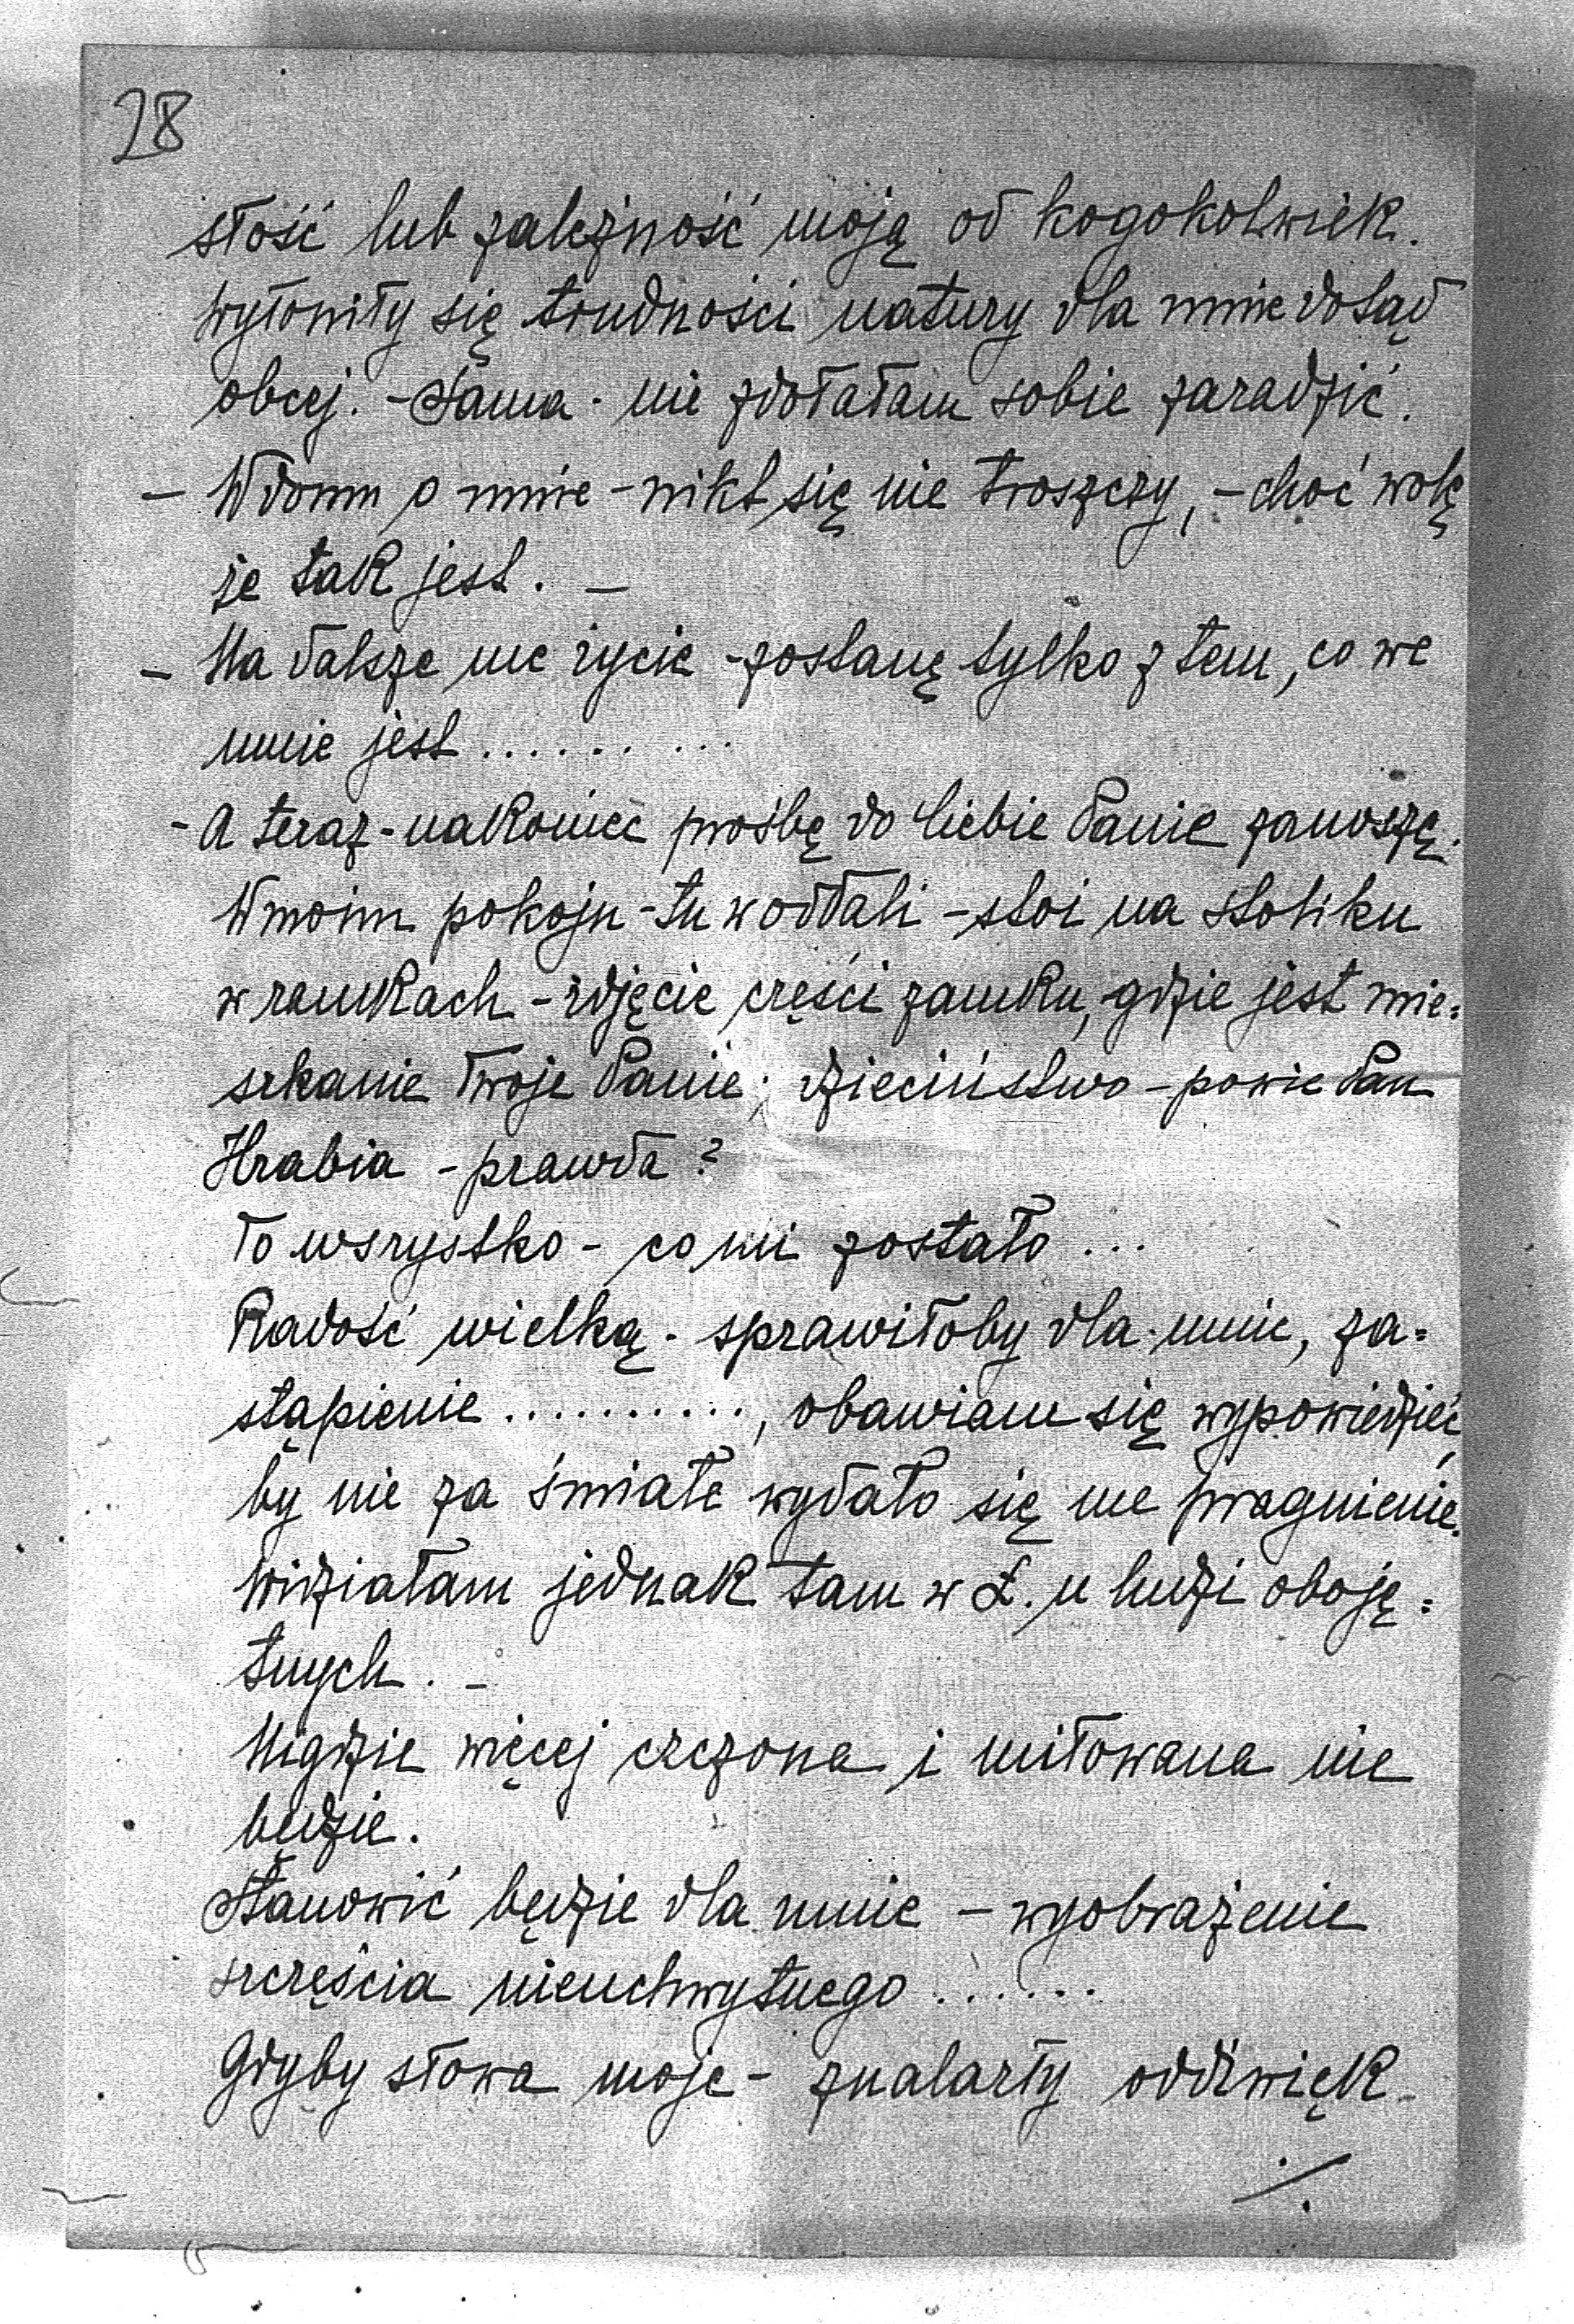 28
słość lub zależność moją od kogokolwiek.
Wyłoniły się trudności natury dla mnie dotąd
obcej. - Sama - nie zdołałam sobie zaradzić.
- W domu o mnie - nikt się nie troszczy, - choć wolę
że tak jest. -
- Na dalsze me życie - zostanę tylko z tem, co we
mnie jest .........
- A teraz - nakoniec prośbę do Ciebie Panie zanoszę.
W moim pokoju - tu w oddali - stoi na stoliku
w ramkach - zdjęcie części zamku, - gdzie jest mie=
szkanie Twoje Panie; dzieciństwo - powie Pan
Hrabia - prawda?
To wszystko - co mi zostało ...
Radość wielką - sprawiłoby dla mnie, za=
stąpienie .........., obawiam się wypowiedzieć,
by nie za śmiałe wydało się me pragnienie.
Widziałam jednak tam w Ł. u ludzi oboję=
tnych. -
Nigdzie więcej czczona i miłowana nie
będzie.
Stanowić będzie dla mnie - wyobrażenie
szczęścia nieuchwytnego ......
Gdyby słowa moje - znalazły oddźwięk -
./.